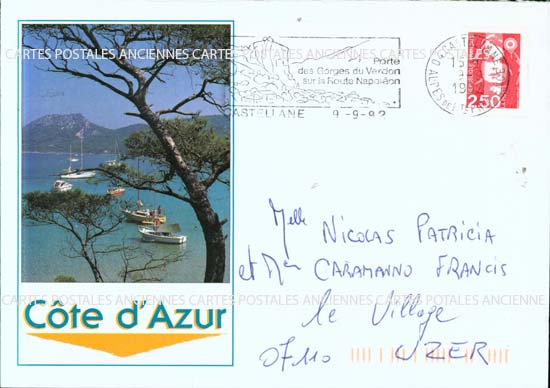 CARTES POSTALES ANCIENNES CARTES POSTALES ANCIENNES CARTES POSTALES ANCIENNES
Porte
des Gorges du Verdon
sur la Route Napoléon
CASTELLANE 9-9-92
2,50
Melle NICOLAS PATRICIA
et Mr CARAMANNO FRANCIS
le Village
07110 UZER
CARTES POSTALES ANCIENNES CARTES POSTALES ANCIENNES CARTES POSTALES ANCIENNE
Côte d'Azur